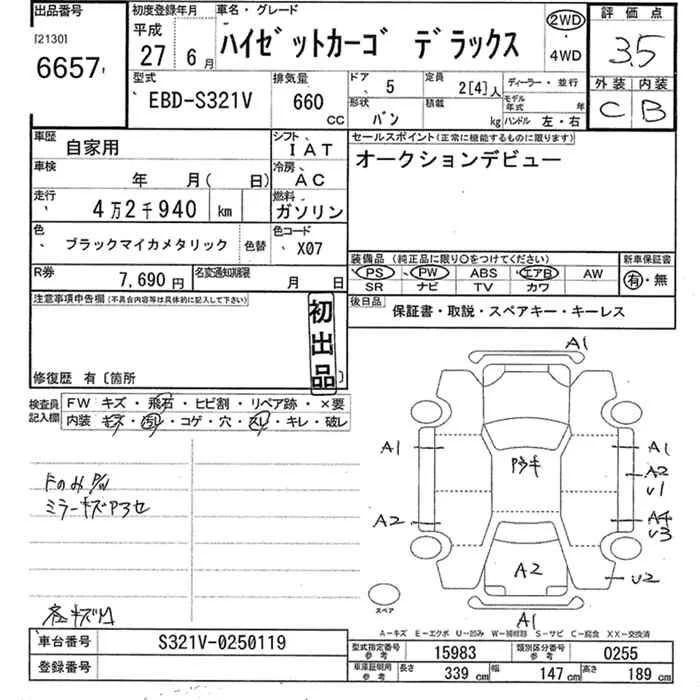 出品番号
[2130]
6657
初度登録年月
平成
27 6月
車名・グレード
ハイゼットカーゴ デラックス
2WD
・
4WD
評価点
3.5
外装 内装
C B
型式
EBD-S321V
排気量
660 CC
ドア 5
定員 2[4]人
形状 バン
積載 kg
ディーラー・並行
モデル年式 年
ハンドル 左・右
車歴 自家用
シフト IAT
車検 年 月( 日)
冷房 AC
走行 4万2千940 km
燃料 ガソリン
色 ブラックマイカメタリック 色替
色コード X07
R券 7,690円
名変通知期限 月 日
セールスポイント(正常に機能するものに限ります)
オークションデビュー
装備品(純正品に限り○をつけてください)
新車保証書
PS PW ABS エアB AW
SR ナビ TV カワ
有・無
後日品
保証書・取説・スペアキー・キーレス
注意事項申告欄(不具合内容等は具体的に記入して下さい)
初出品
修復歴 有〔箇所 〕
検査員記入欄
FW キズ・飛石・ヒビ割・リペア跡・×要
内装 キズ・汚レ・コゲ・穴・スレ・キレ・破レ
ミラーキズ
A1
A1 A1
A2
U1
A2 A4
U3
A2
U2
A1
スペア
A-キズ E-エクボ U-凹み W-補修跡 S-サビ C-腐食 XX-交換済
車台番号 S321V-0250119
登録番号
型式指定番号 参考 15983
類別区分番号 参考 0255
車庫証明用 参考 長さ 339 cm 幅 147 cm 高さ 189 cm